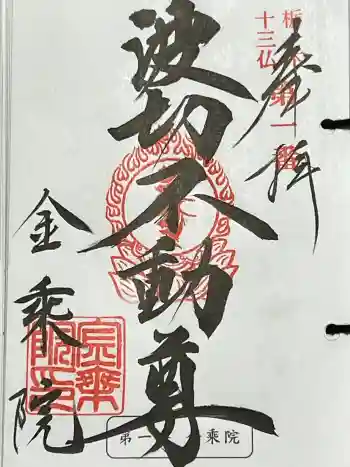 奉拝
十三仏 第一番
波切不動尊
金乗院
第一 乗院